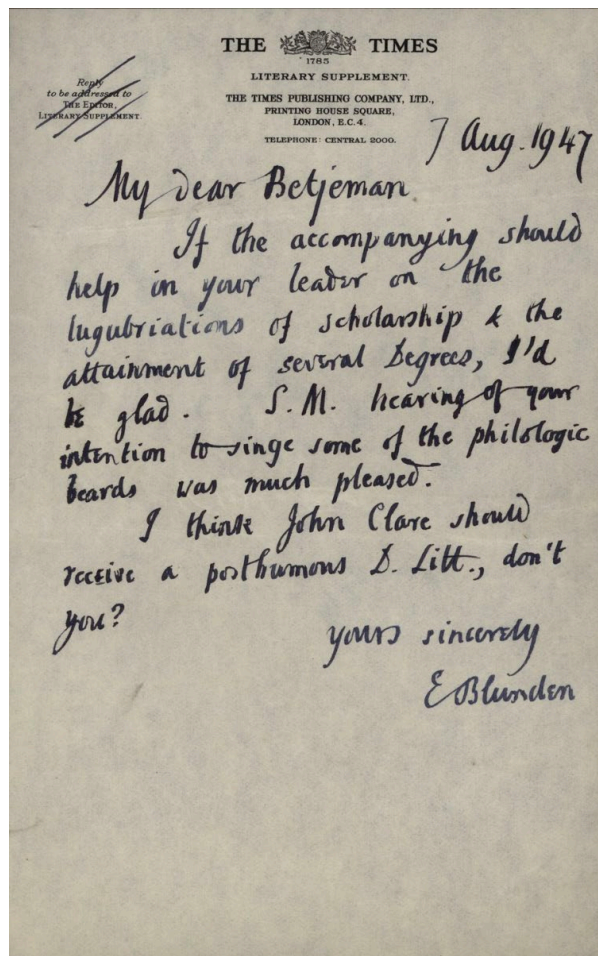 THE TIMES
1785
LITERARY SUPPLEMENT.
Reply
to be addressed to
THE EDITOR,
LITERARY SUPPLEMENT.
THE TIMES PUBLISHING COMPANY, LTD.,
PRINTING HOUSE SQUARE,
LONDON, E.C.4.
TELEPHONE: CENTRAL 2000.
7 Aug. 1947
My dear Betjeman
If the accompanying should
help in your leader on the
lugubriations of scholarship & the
attainment of several Degrees, I'd
be glad. S.M. hearing of your
intention to singe some of the philologic
beards was much pleased.
I think John Clare should
receive a posthumous D. Litt., don't
you?
yours sincerely
E Blunden